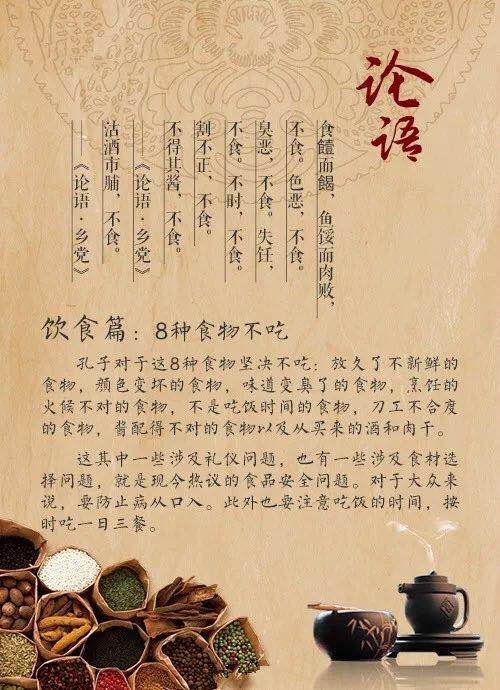 论语
食饐而餲，鱼馁而肉败，
不食。色恶，不食。
臭恶，不食。失饪，
不食。不时，不食。
割不正，不食。
不得其酱，不食。
——《论语·乡党》
沽酒市脯，不食。
——《论语·乡党》
饮食篇：8种食物不吃
孔子对于这8种食物坚决不吃：放久了不新鲜的
食物，颜色变坏的食物，味道变臭了的食物，烹饪的
火候不对的食物，不是吃饭时间的食物，刀工不合度
的食物，酱配得不对的食物以及从买来的酒和肉干。
这其中一些涉及礼仪问题，也有一些涉及食材选
择问题，就是现今热议的食品安全问题。对于大众来
说，要防止病从口入。此外也要注意吃饭的时间，按
时吃一日三餐。